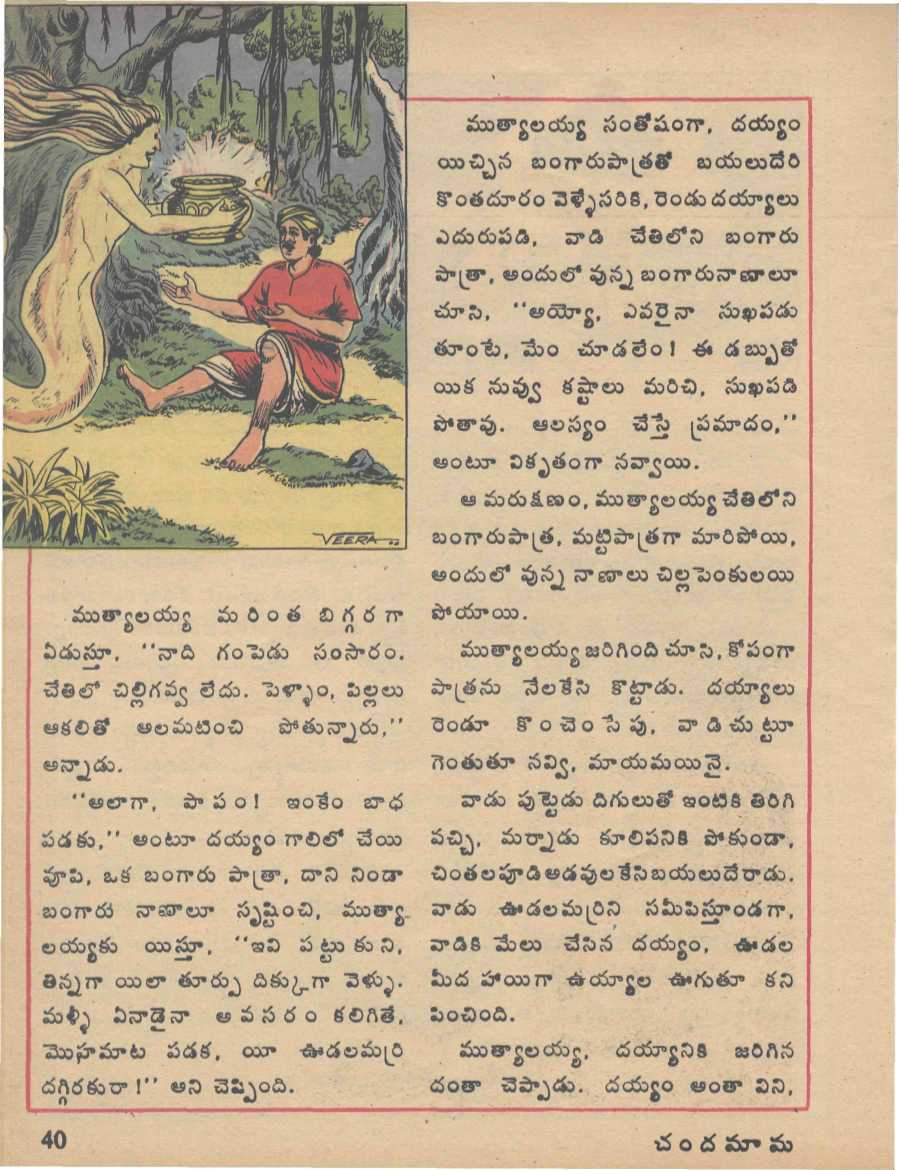 VEERA
ముత్యాలయ్య మరింత బిగ్గరగా
ఏడుస్తూ, ‘‘నాది గంపెడు సంసారం.
చేతిలో చిల్లిగవ్వ లేదు. పెళ్ళాం, పిల్లలు
ఆకలితో అలమటించి పోతున్నారు,’’
అన్నాడు.
‘‘అలాగా, పాపం! ఇంకేం బాధ
పడకు,’’ అంటూ దయ్యం గాలిలో చేయి
వూపి, ఒక బంగారు పాత్రా, దాని నిండా
బంగారు నాణాలూ సృష్టించి, ముత్యా
లయ్యకు యిస్తూ, ‘‘ఇవి పట్టుకుని,
తిన్నగా యిలా తూర్పు దిక్కుగా వెళ్ళు.
మళ్ళీ ఏనాడైనా అవసరం కలిగితే,
మొహమాట పడక, యీ ఊడలమర్రి
దగ్గిరకురా!’’ అని చెప్పింది.
ముత్యాలయ్య సంతోషంగా, దయ్యం
యిచ్చిన బంగారుపాత్రతో బయలుదేరి
కొంతదూరం వెళ్ళేసరికి, రెండు దయ్యాలు
ఎదురుపడి, వాడి చేతిలోని బంగారు
పాత్రా, అందులో వున్న బంగారునాణాలూ
చూసి, ‘‘అయ్యో, ఎవరైనా సుఖపడు
తూంటే, మేం చూడలేం! ఈ డబ్బుతో
యిక నువ్వు కష్టాలు మరిచి, సుఖపడి
పోతావు. ఆలస్యం చేస్తే ప్రమాదం,’’
అంటూ వికృతంగా నవ్వాయి.
ఆ మరుక్షణం, ముత్యాలయ్య చేతిలోని
బంగారుపాత్ర, మట్టిపాత్రగా మారిపోయి,
అందులో వున్న నాణాలు చిల్లపెంకులయి
పోయాయి.
ముత్యాలయ్య జరిగింది చూసి, కోపంగా
పాత్రను నేలకేసి కొట్టాడు. దయ్యాలు
రెండూ కొంచెంసేపు, వాడిచుట్టూ
గెంతుతూ నవ్వి, మాయమయినై.
వాడు పుట్టెడు దిగులుతో ఇంటికి తిరిగి
వచ్చి, మర్నాడు కూలిపనికి పోకుండా,
చింతలపూడి అడవులకేసి బయలుదేరాడు.
వాడు ఊడలమర్రిని సమీపిస్తూండగా,
వాడికి మేలు చేసిన దయ్యం, ఊడల
మీద హాయిగా ఉయ్యాల ఊగుతూ కని
పించింది.
ముత్యాలయ్య, దయ్యానికి జరిగిన
దంతా చెప్పాడు. దయ్యం అంతా విని,
40
చందమామ